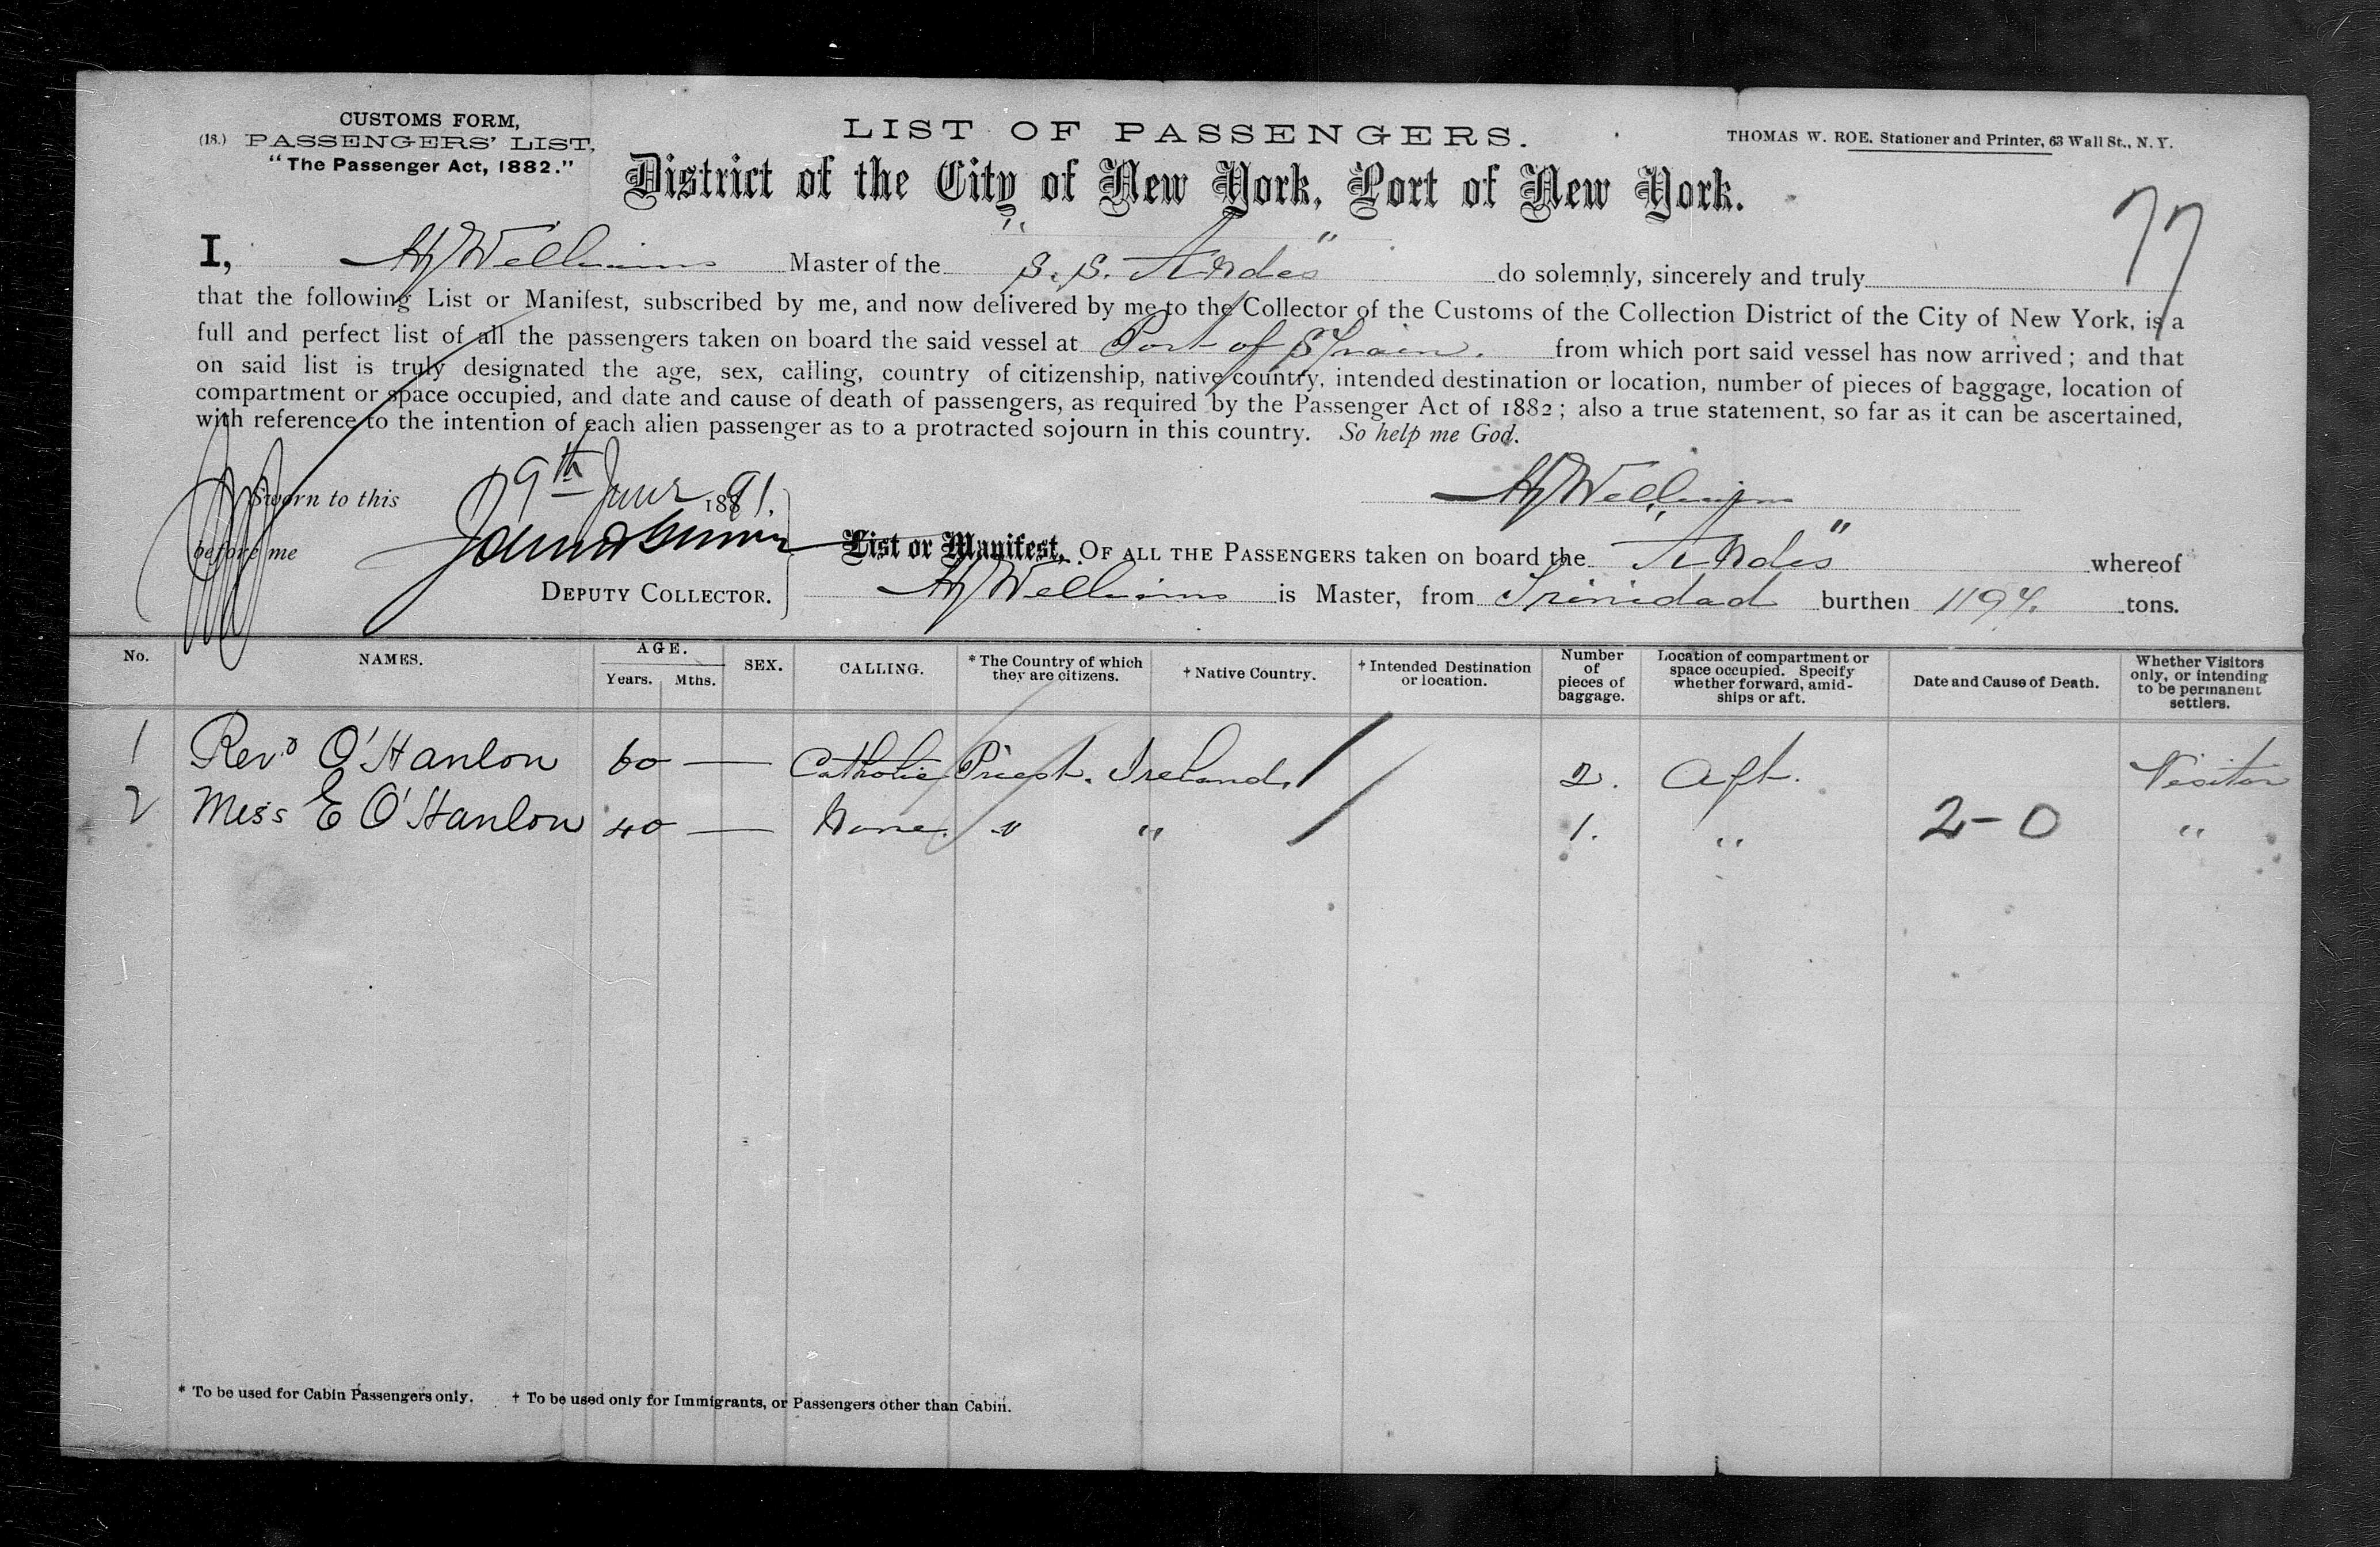 CUSTOMS FORM,
(18.) PASSENGERS' LIST.
"The Passenger Act, 1882."
LIST OF PASSENGERS.
THOMAS W. ROE, Stationer and Printer, 63 Wall St., N. Y.
District of the City of New York, Port of New York.
77
I, Williams Master of the "S. S. Andes" do solemnly, sincerely and truly
that the following List or Manifest, subscribed by me, and now delivered by me to the Collector of the Customs of the Collection District of the City of New York, is a
full and perfect list of all the passengers taken on board the said vessel at Port of Spain. from which port said vessel has now arrived; and that
on said list is truly designated the age, sex, calling, country of citizenship, native country, intended destination or location, number of pieces of baggage, location of
compartment or space occupied, and date and cause of death of passengers, as required by the Passenger Act of 1882; also a true statement, so far as it can be ascertained,
with reference to the intention of each alien passenger as to a protracted sojourn in this country. So help me God.
Sworn to this 9th June 1891.
Williams
before me
DEPUTY COLLECTOR.
List or Manifest, OF ALL THE PASSENGERS taken on board the "Andes" whereof
Williams is Master, from Trinidad burthen 1194. tons.
No. NAMES. AGE. Years. Mths. SEX. CALLING. * The Country of which they are citizens. † Native Country. † Intended Destination or location. Number of pieces of baggage. Location of compartment or space occupied. Specify whether forward, amid-ships or aft. Date and Cause of Death. Whether Visitors only, or intending to be permanent settlers.
1 Revd O'Hanlon 60 — Catholic Priest. Ireland. 2. Aft. Visitor
2 Miss E O'Hanlon 40 — None. " " 1. " 2-0 "
* To be used for Cabin Passengers only. † To be used only for Immigrants, or Passengers other than Cabin.